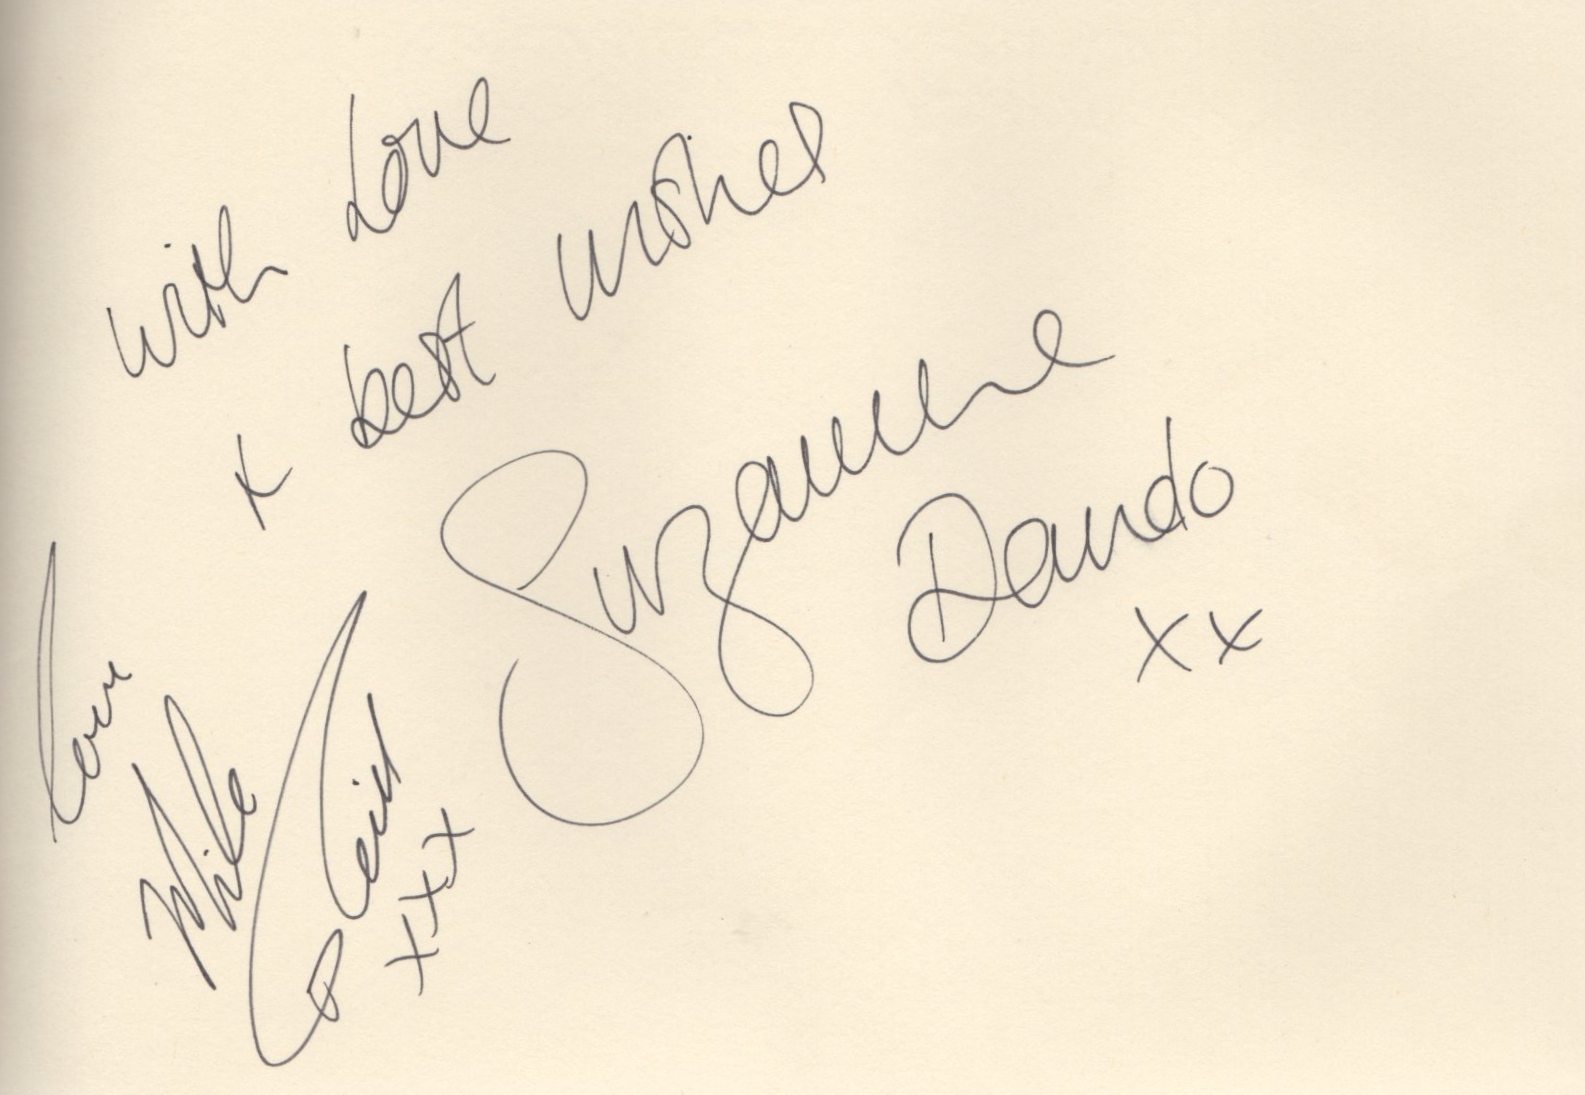 with Love
+ best wishes
Suzanne
Dando
xx
love
Mike
Reid
xxx